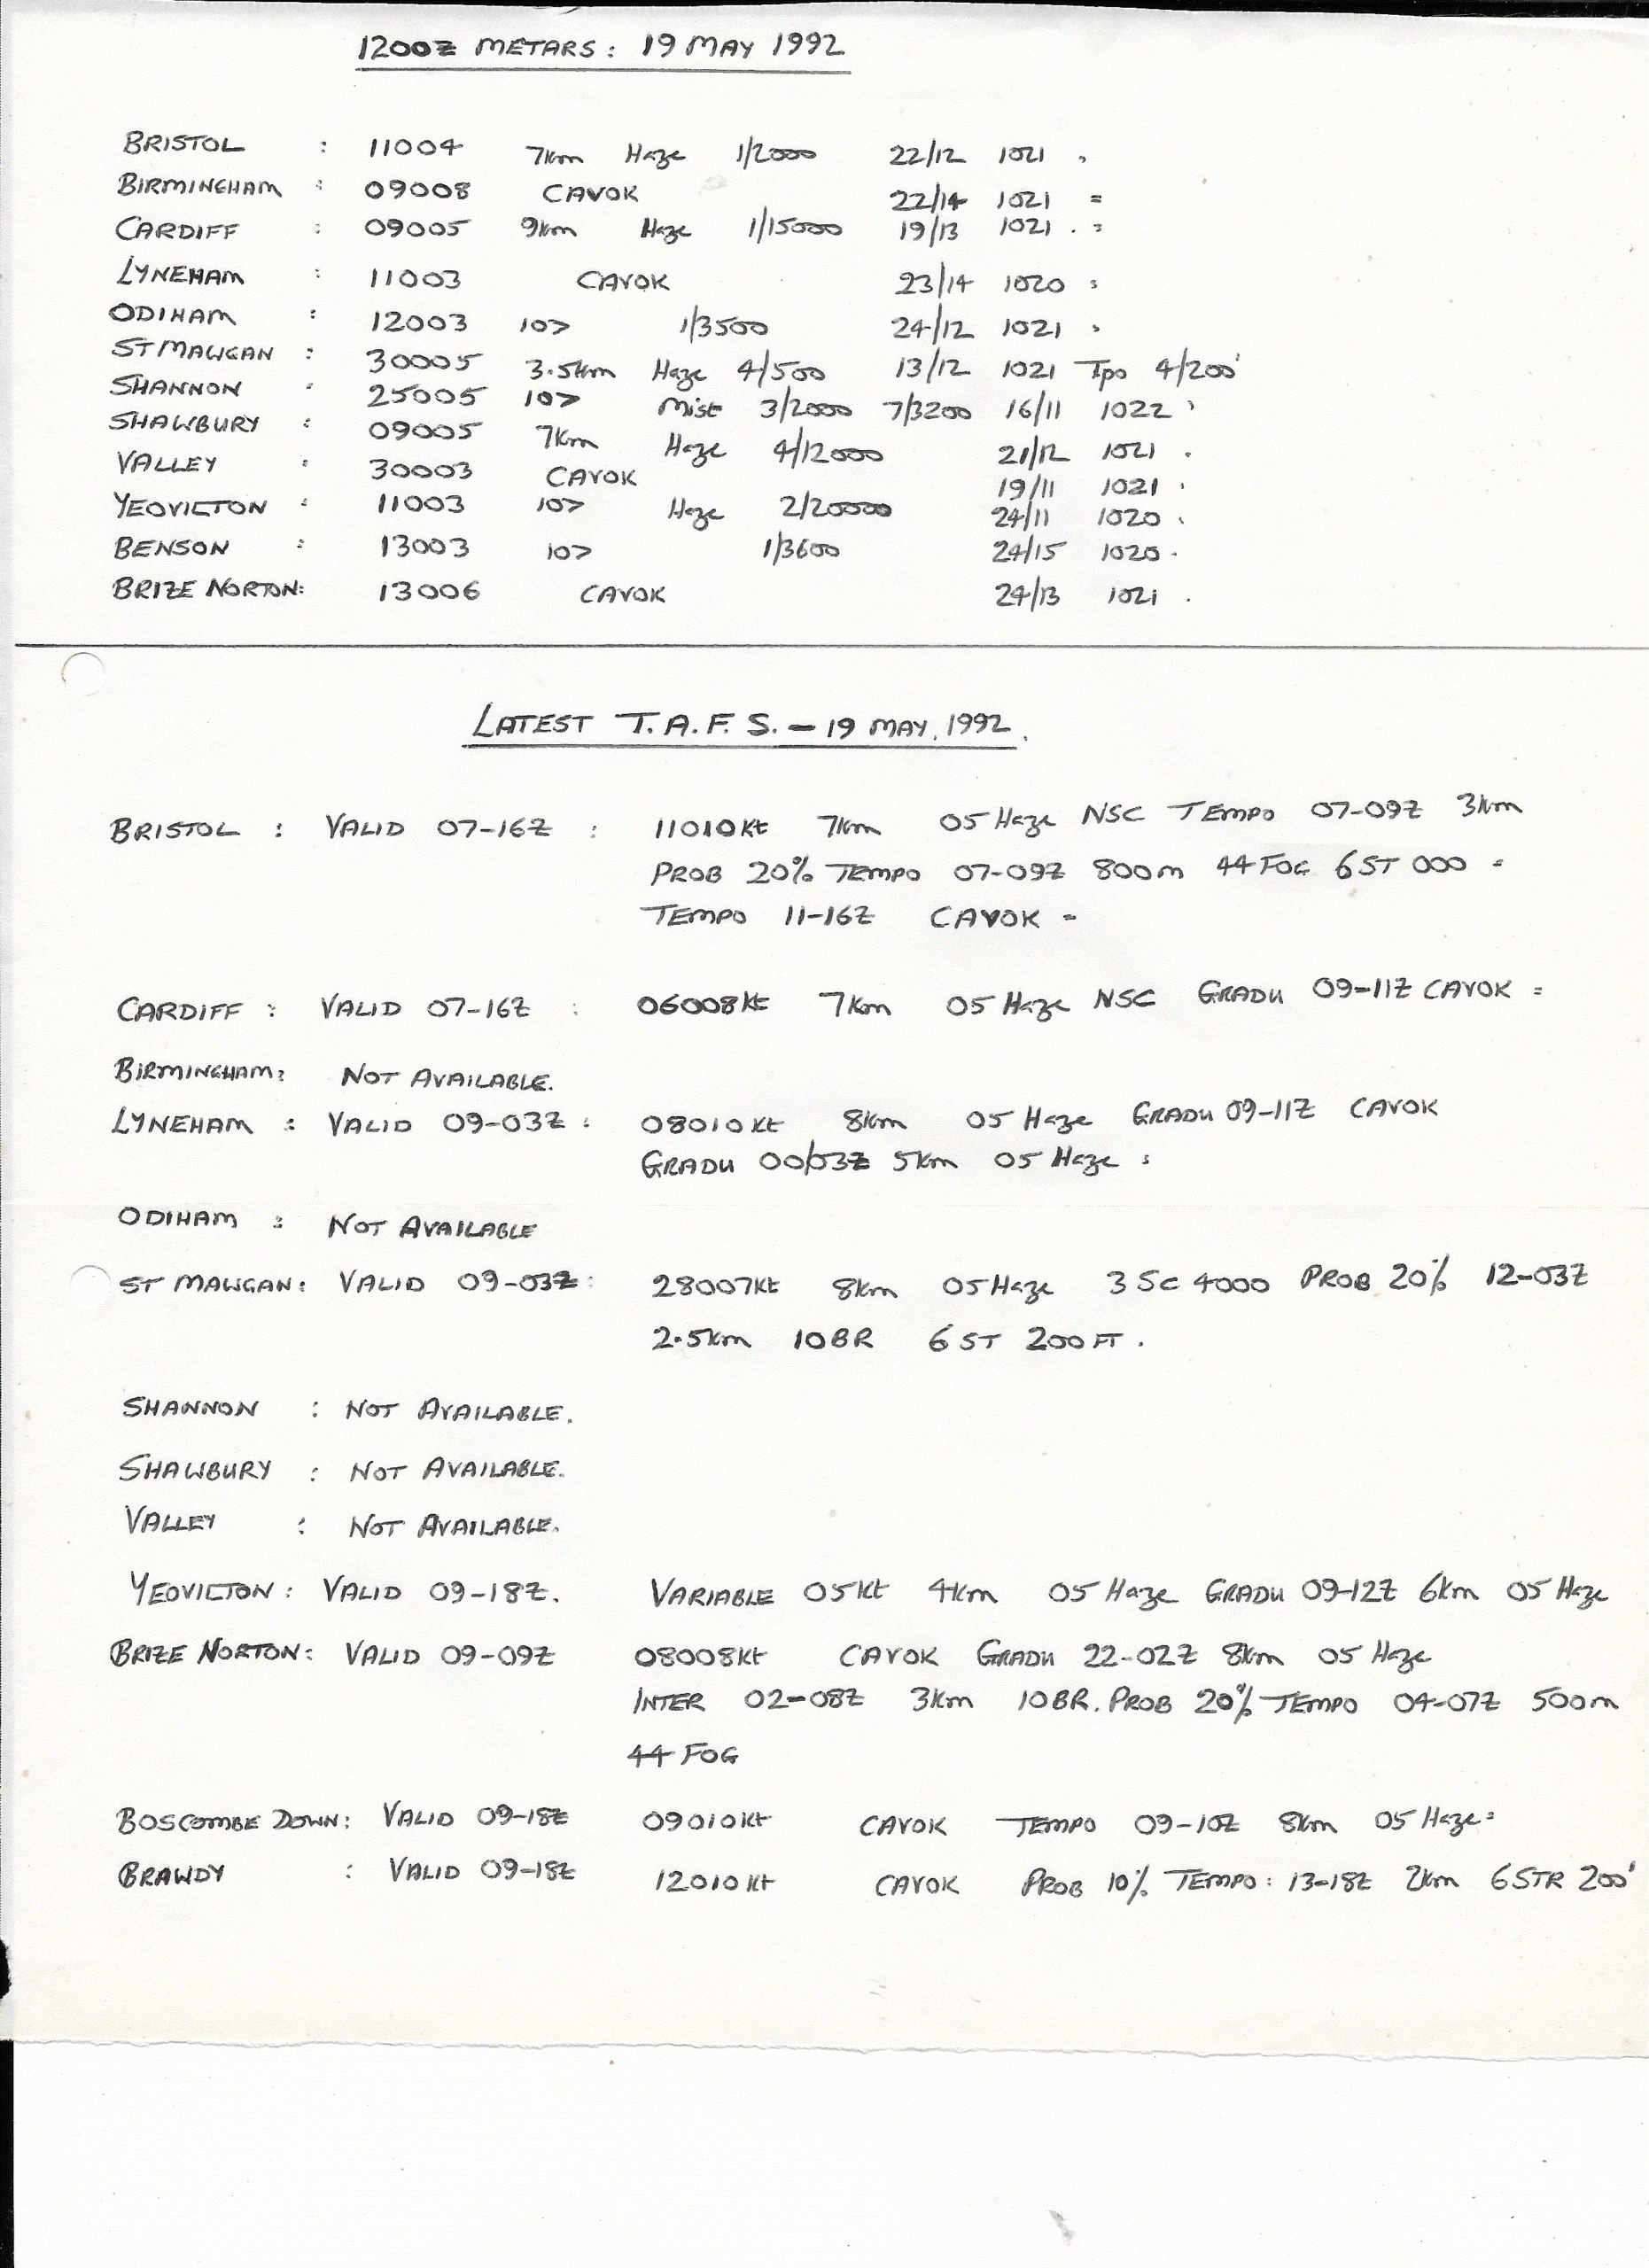 1200Z METARS: 19 MAY 1992
BRISTOL : 11004 7km Haze 1/2000 22/12 1021 =
BIRMINGHAM : 09008 CAVOK 22/14 1021 =
CARDIFF : 09005 9km Haze 1/15000 19/13 1021 . =
LYNEHAM : 11003 CAVOK 23/14 1020 =
ODIHAM : 12003 10> 1/3500 24/12 1021 =
ST MAWGAN : 30005 3.5km Haze 4/500 13/12 1021 Tpo 4/200'
SHANNON : 25005 10> Mist 3/2000 7/3200 16/11 1022 =
SHAWBURY : 09005 7km Haze 4/12000 21/12 1021 .
VALLEY : 30003 CAVOK 19/11 1021 .
YEOVILTON : 11003 10> Haze 2/20000 24/11 1020 .
BENSON : 13003 10> 1/3600 24/15 1020 .
BRIZE NORTON: 13006 CAVOK 24/13 1021 .
LATEST T.A.F.S. - 19 MAY. 1992.
BRISTOL : VALID 07-16Z : 11010kt 7km 05 Haze NSC TEMPO 07-09Z 3km
PROB 20% TEMPO 07-09Z 800m 44 FOG 6 ST 000 =
TEMPO 11-16Z CAVOK =
CARDIFF : VALID 07-16Z : 06008kt 7km 05 Haze NSC GRADU 09-11Z CAVOK =
BIRMINGHAM: NOT AVAILABLE.
LYNEHAM : VALID 09-03Z : 08010kt 8km 05 Haze GRADU 09-11Z CAVOK
GRADU 00/03Z 5km 05 Haze =
ODIHAM : NOT AVAILABLE
ST MAWGAN: VALID 09-03Z : 28007kt 8km 05 Haze 3 SC 4000 PROB 20% 12-03Z
2.5km 10BR 6 ST 200 FT .
SHANNON : NOT AVAILABLE.
SHAWBURY : NOT AVAILABLE.
VALLEY : NOT AVAILABLE.
YEOVILTON : VALID 09-18Z. VARIABLE 05kt 4km 05 Haze GRADU 09-12Z 6km 05 Haze
BRIZE NORTON: VALID 09-09Z 08008kt CAVOK GRADU 22-02Z 8km 05 Haze
INTER 02-08Z 3km 10BR. PROB 20% TEMPO 04-07Z 500m
44 FOG
BOSCOMBE DOWN: VALID 09-18Z 09010kt CAVOK TEMPO 09-10Z 8km 05 Haze=
BRAWDY : VALID 09-18Z 12010kt CAVOK PROB 10% TEMPO: 13-18Z 2km 6 STR 200'